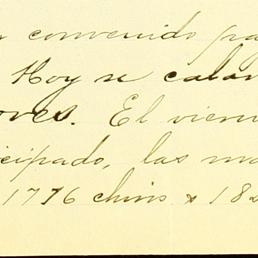 convenido pa
. Hoy se calan
oves. El vier
cipado, las ma
1776 chinos & 18